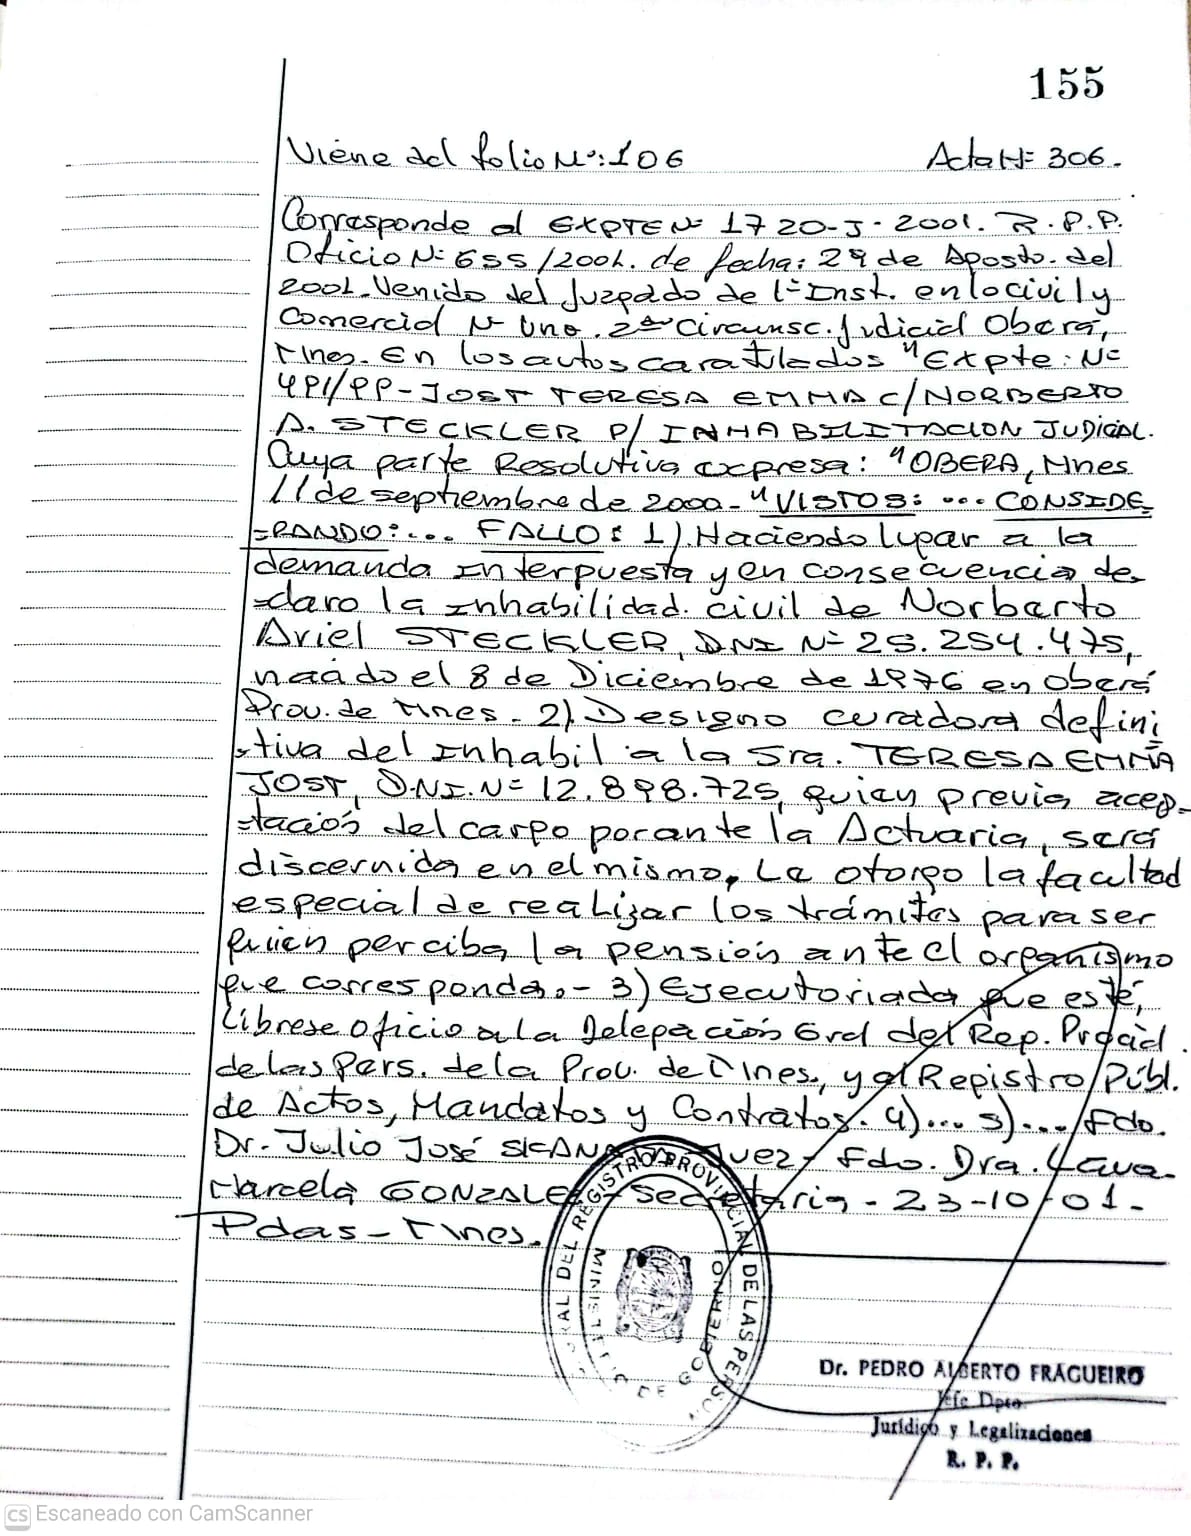 155
Viene del folio Nº: 106 Acta Nº 306.
Corresponde al EXPTE Nº 1720-J-2001. R.P.P.
Oficio Nº 655/2001. de fecha: 29 de Agosto. del
2001. Venido del Juzgado de 1ª Inst. en lo civil y
Comercial Nº Uno. 2da Circunsc. Judicial Oberá,
Mnes. En los autos caratulados "Expte: Nº
491/99-JOST TERESA EMMA C/NORBERTO
A. STECKLER P/ INHABILITACION JUDICIAL.
Cuya parte Resolutiva expresa: "OBERA, Mnes
11 de septiembre de 2000- "VISTOS: ... CONSIDE
=RANDO: ... FALLO: 1). Haciendo lugar a la
demanda Interpuesta y en consecuencia de-
=claro la Inhabilidad. civil de Norberto
Ariel STECKLER, DNI Nº 25.254.475,
nacido el 8 de Diciembre de 1976 en Oberá
Prov. de Mnes. 2). Designo curadora defini
=tiva del Inhabil a la Sra. TERESA EMMA
JOST, D.NI.Nº 12.898.725, quien previa acep-
=tación del cargo por ante la Actuaria, será
discernida en el mismo, Le otorgo la facultad
especial de realizar los trámites para ser
quien perciba la pensión ante el organismo
que corresponda.- 3) Ejecutoriada que esté,
líbrese oficio a la Delegación Gral del Reg. Provcial.
de las Pers. de la Prov. de Mnes, y al Registro Públ.
de Actos, Mandatos y Contratos. 4)... 5).... Fdo.
Dr. Julio José Juez- Fdo. Dra.
Marcela GONZALEZ- Secretaria - 23-10-01-
Pdas- Mnes.
REGISTRO PROVINCIAL DE LAS PERSON
MINIST DE GOBIERNO
Dr. PEDRO ALBERTO FRAGUEIRO
Jefe Dpto
Jurídico y Legalizaciones
R. P. P.
CS Escaneado con CamScanner